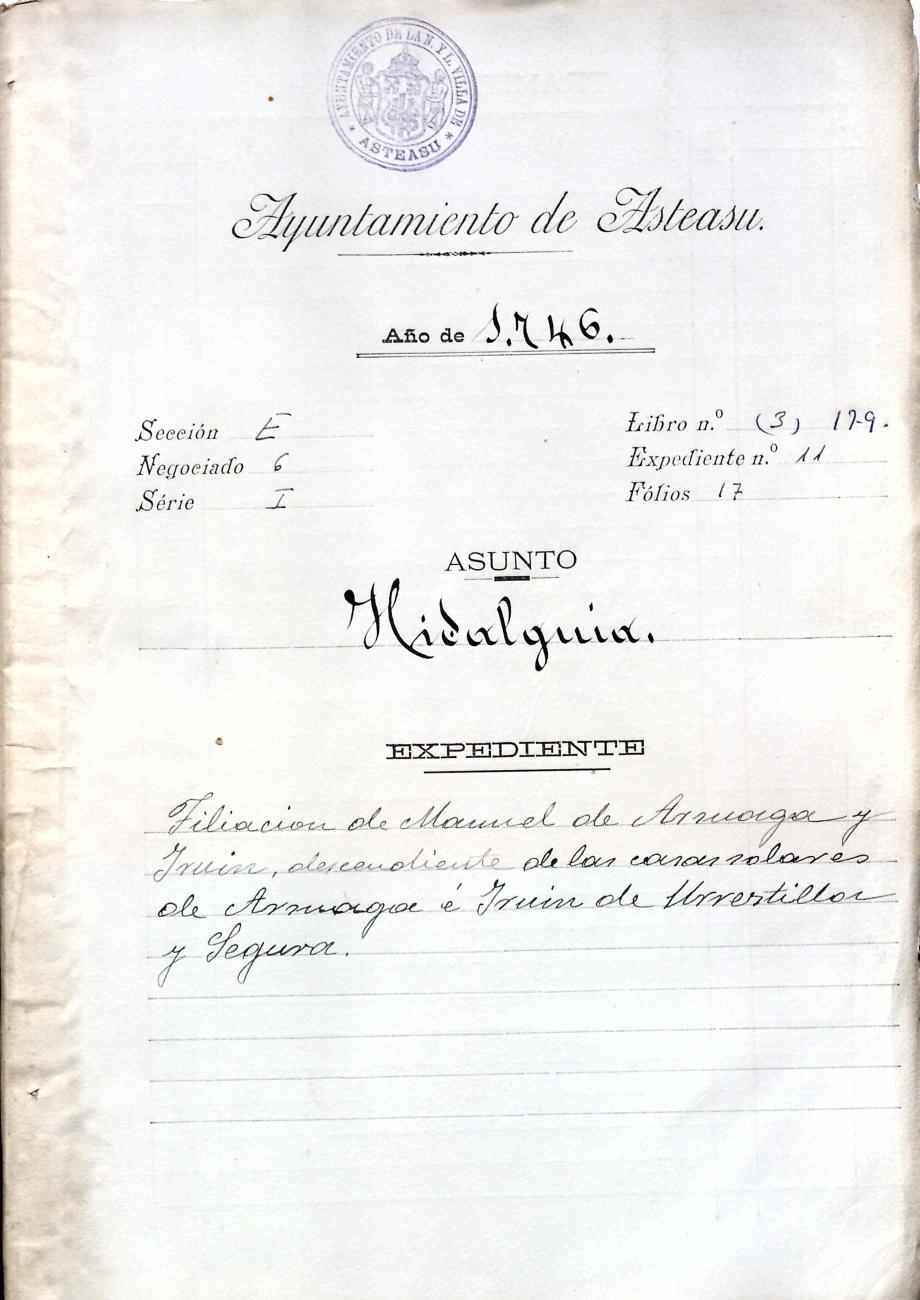 AYUNTAMIENTO DE LA N. Y L. VILLA DE
* ASTEASU *
Ayuntamiento de Asteasu.
Año de 1.746.
Sección E
Negociado 6
Série I
Libro n.º (3) 179.
Expediente n.º 11
Fólios 17
ASUNTO
Hidalguia.
EXPEDIENTE
Filiacion de Manuel de Arruaga y
Iruin, descendiente de las casas solares
de Arruaga é Iruin de Urrestilla
y Segura.